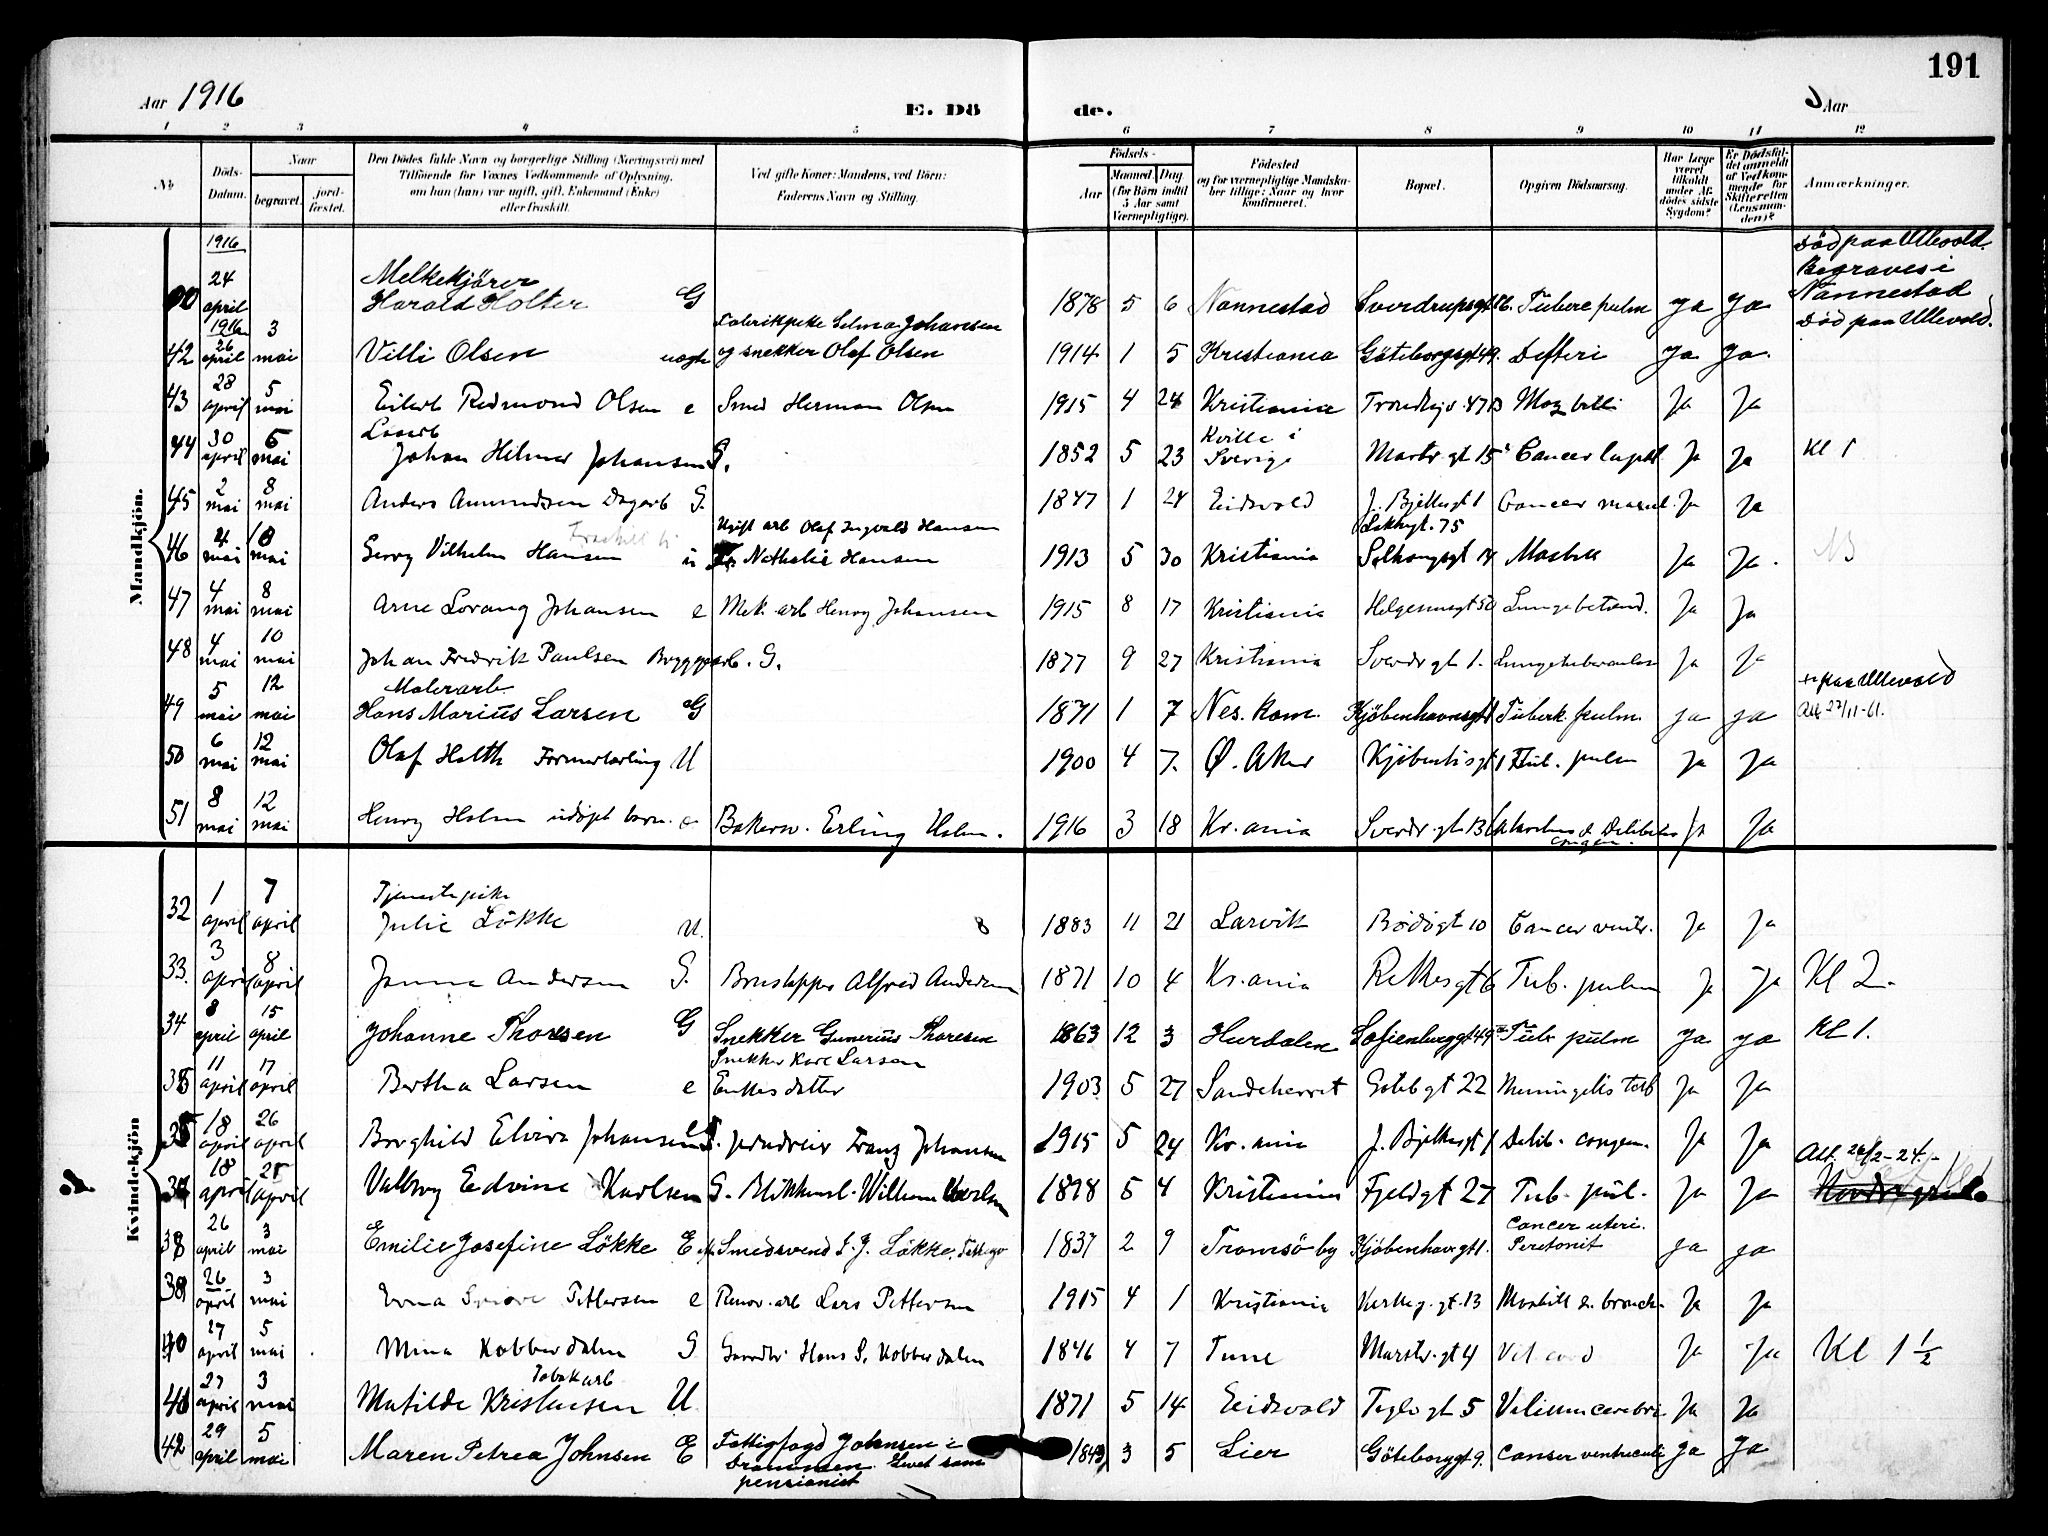 191
Aar 1916
E. Dö
de.
Aar
1 2 3 4 5 6 7 8 9 10 11 12
No
Döds-Datum.
Naar
begravet.
jord-fæstet.
Den Dödes fulde Navn og borgerlige Stilling (Næringsvei) med
Tilföiende for Voxnes Vedkommende af Oplysning,
om han (hun) var ugift, gift, Enkemand (Enke)
eller fraskilt.
Ved gifte Koner: Mandens, ved Börn:
Faderens Navn og Stilling.
Födsels-
Aar
Maaned Dag
(for Börn indtil
5 Aar samt
Værnepligtige).
Födested
og for værnepligtige Mandska-
ber tillige: Naar og hvor
konfirmeret.
Bopæl.
Opgiven Dödsaarsag.
Har læge
været
tilkaldt
under Af-
dödes sidste
Sygdom?
Er Dödsfal-
det anmeldt
af Vedkom-
mende for
Skifteretten
(Lensman-
den)?
Anmærkninger.
Mandkjön.
1916
24 april Melkekjörer Harald Holter G 1878 5 6 Nannestad Sverdrupsgt Tuberc pulm ja ja Död paa Ullevold. Begraves i Nannestad
42 1916 26 april 3 mai Villi Olsen uegte Fabrikpike Selma Johansen og snekker Olaf Olsen 1914 1 5 Kristiania Göteborggt 49. Difteri ja ja. Död paa Ullevold.
43 28 april 5 mai Eilert Redmond Olsen e Smed Herman Olsen 1915 4 24 Kristiania Trondhjv. 47B Ja Ja
44 30 april 6 mai Johan Hilmer Johansen G. 1852 5 23 Kville i Sverige Markv. gt 15 Cancer Ja Ja Kl 1
45 2 mai 8 mai Anders Amundsen Dagarb G. 1847 1 24 Eidsvold J. Bjelkesgt 1 Cancer Ja Ja
46 4 mai 8 mai Georg Vilhelm Hansen u Ugift arb Olaf Ingvald Hansen Nathalie Hansen 1913 5 30 Kristiania Ja Ja.
47 4 mai 8 mai Arne Lorang Johansen e Mek. arb Henry Johansen 1915 8 17 Kristiania Helgesensgt 50 Lungebetænd. Ja Ja
48 4 mai 10 mai Johan Fredrik Paulsen Bryggearb. G. 1877 9 27 Kristiania Sverdr gt 1. Lungetuberculose Ja Ja
49 5 mai 12 mai Malerarb. Hans Marius Larsen G 1871 1 7 Nes. Rom. Kjöbenhavnsgt Tuberk. pulm. ja ja + paa Ullevold Att 27/11-61.
50 6 mai 12 mai Olaf Holth Formerlærling U 1900 4 7. Ø. Aker Tub. pulm Ja Ja
51 8 mai 12 mai Henry Holm udöpt barn. e Bakersv. Erling Holm. 1916 3 18 Kr.ania Sverdr. gt 13 Debilitas congen. Ja Ja
Kvindekjön
32 1 april 7 april Tjenestepike Julie Lökke U. 1883 11 21 Larvik Bodögt 10 Cancer ventr. Ja Ja
33. 3 april 8 april Janna Andersen G. Alfred Andersen 1871 10 4 Kr.ania Rathkesgt 6 Tub. pulm Ja Ja Kl 2.
34 8 april 15 april Johanne Thoresen G Snekker Gunerius Thoresen 1863 12 3 Hurdalen Sofienberggt 49 Tub. pulm ja ja Kl 1.
35 11 april 17 april Bertha Larsen e Snekker Karl Larsen Enkes datter 1903 5 27 Sandeherret Goteb gt 22 Meningitis tub Ja Ja
18 april 26 april Borghild Elvira Johansen Franz Johansen 1915 5 24 Kr. ania J. Bjelkesgt 1 Debil. congen. Ja Ja
37 18 april 25 april Valborg Edvine Karlsen G. Blikkensl. William Karlsen 1898 5 4 Kristiania Fjeldgt 27 Tub. pul. Ja Ja Att. 26/2-24.
38 26 april 3 mai Emilie Josefine Lökke E Smedsvend J. J. Lökke. 1837 2 9 Tromsö by Kjöbenhavgt 1. Cancer uteri. Peretonit ja ja
39 26 april 3 mai Erna Pettersen e Renov. arb Lars Pettersen 1915 4 1 Kristiania Kirkeg. gt. 13 Ja Ja
40 27 april 5 mai Mina Kobberdalen G Gaardbr Hans P. Kobberdalen 1846 4 7 Tune Markv. gt 4 Vit. cord Ja Ja Kl 1 1/2
41 27 april 3 mai Tobakarb Matilde Kristensen U. 1871 5 14 Eidsvold Teglv gt 5 Ja Ja
42 29 april 5 mai Maren Petrea Johnsen E Fattigfogd Johnsen i Drammen. Levet som pensionist 1843 3 5 Lier Göteborggt 9. Canser ventriculi ja ja